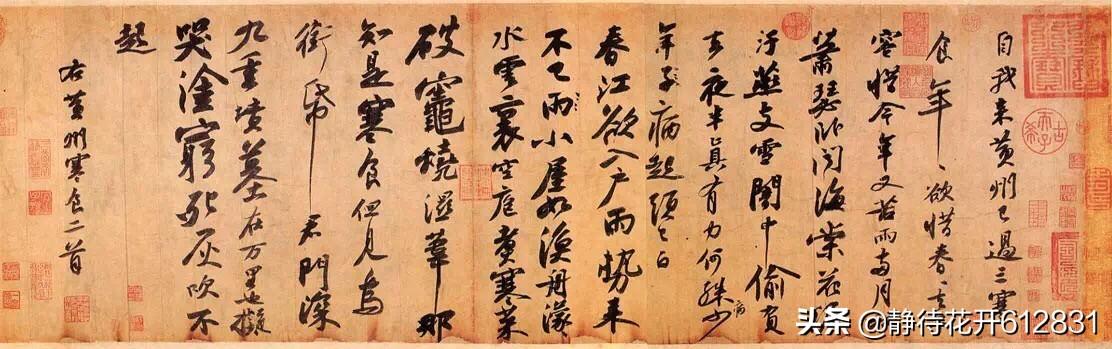 自我来黄州已過三寒
食年〻欲惜春〻去
容惜今年又苦雨两月
蕭瑟卧聞海棠花
汙燕支雪闇中偷負
去夜半真有力何殊少
病
年子病起頭已白
春江欲入户雨勢来
不已雨小屋如漁舟濛〻
水雲裏空庖煮寒菜
破竈燒濕葦那
知是寒食但見烏
銜帋君門深
九重墳墓在万里也擬
哭塗窮死灰吹不
起
右黄州寒食二首
古希天子
头条 @静待花开612831